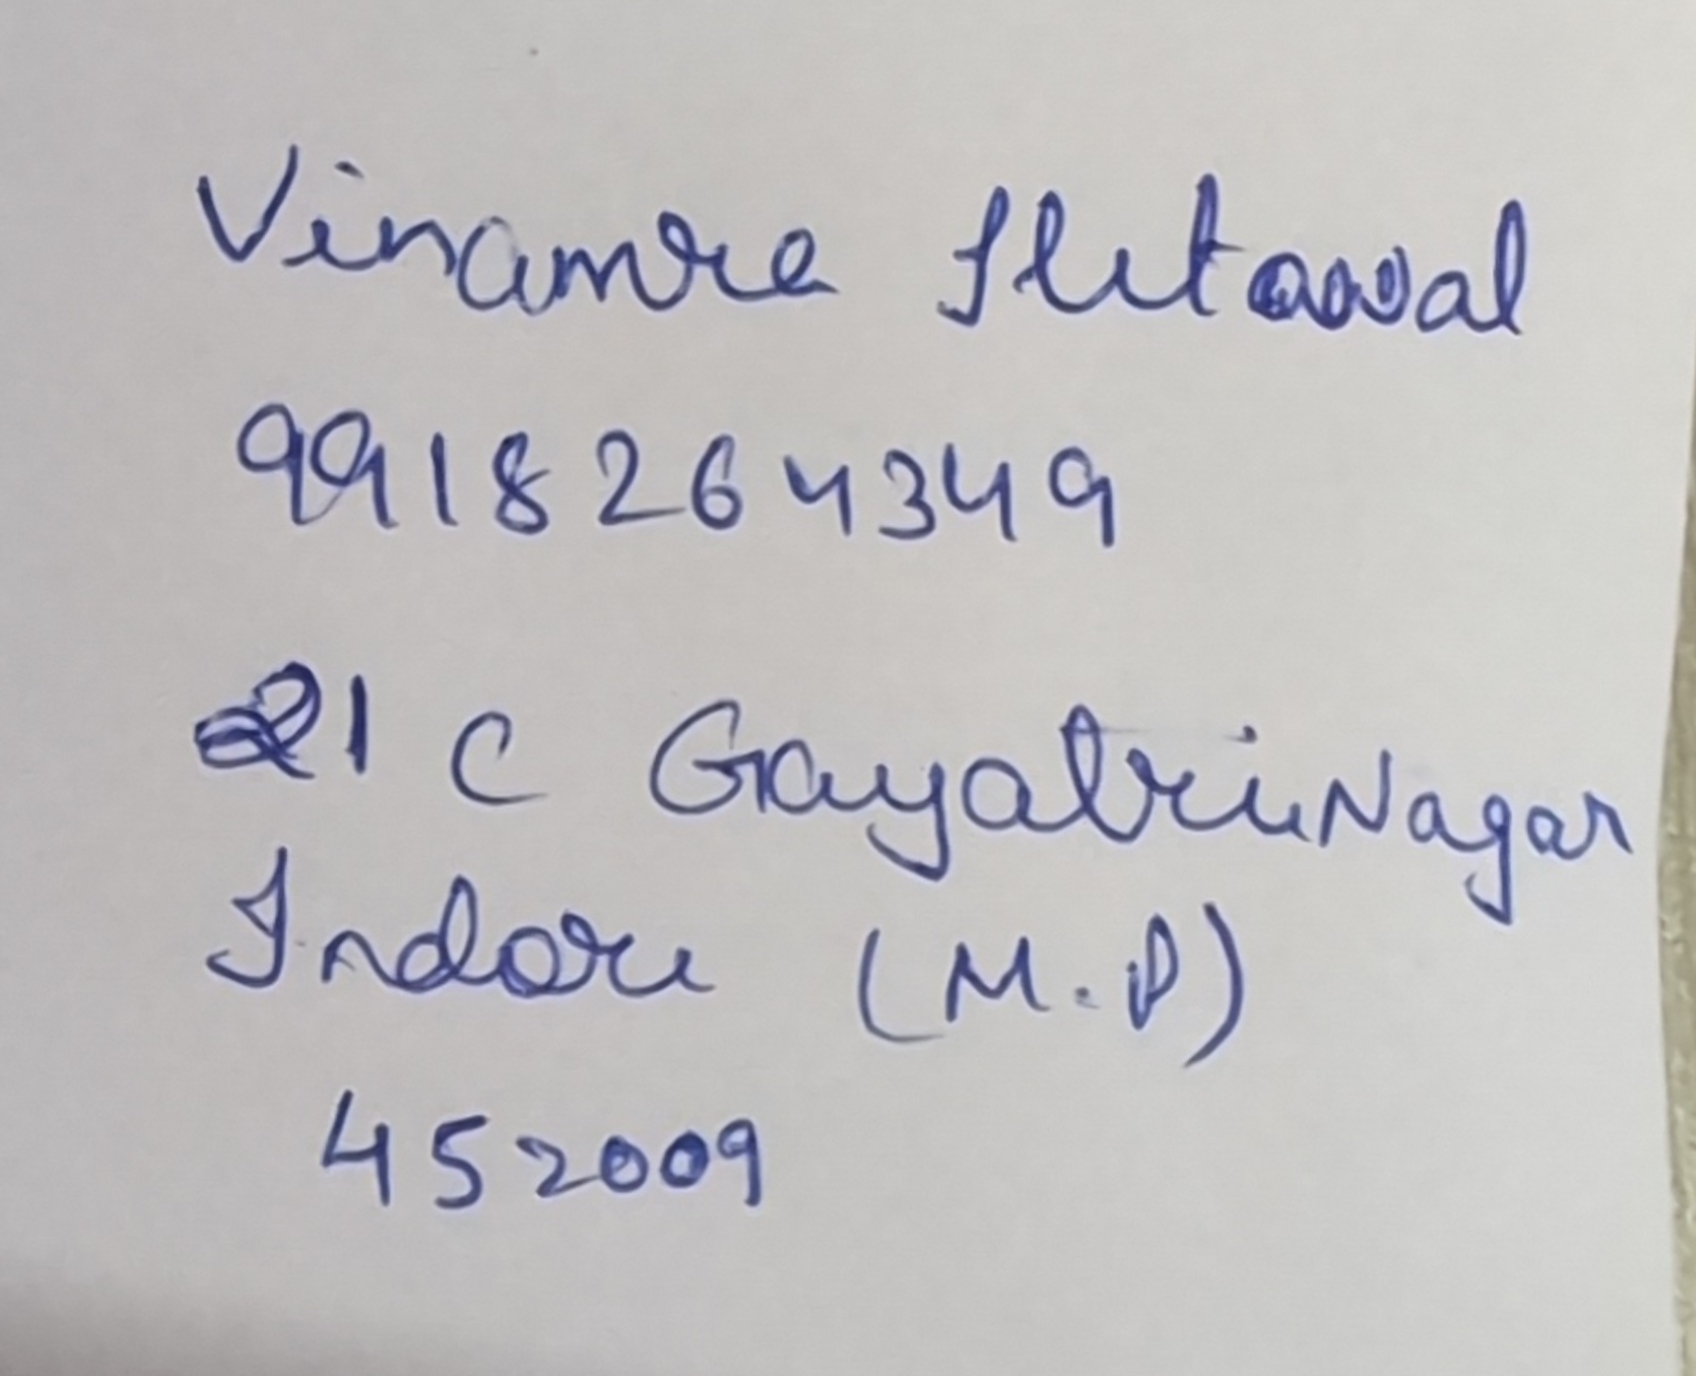 Vinamra
9918264349
21 C Gayatri Nagar
Indore (M.P)
452009